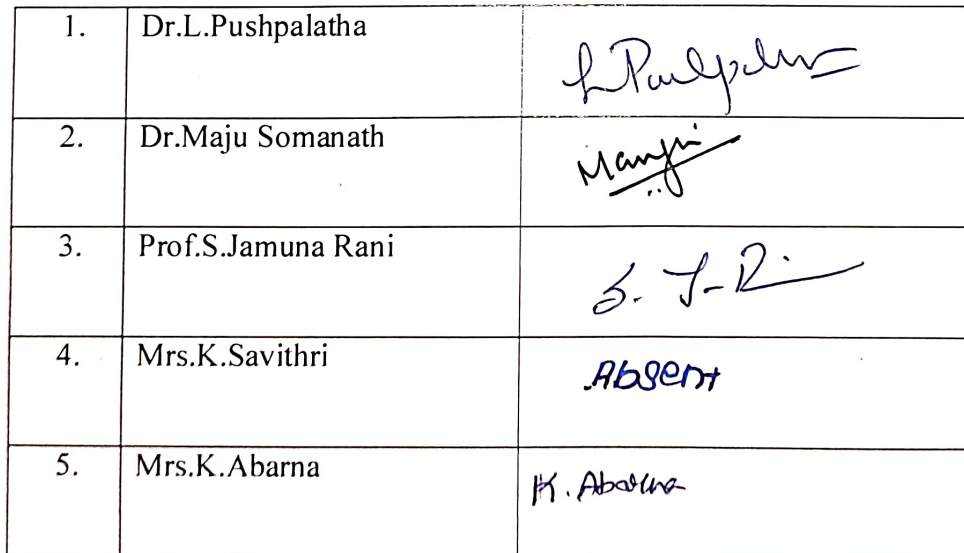 1. Dr.L.Pushpalatha
2. Dr.Maju Somanath Manju
3. Prof.S.Jamuna Rani S. J-R
4. Mrs.K.Savithri Absent
5. Mrs.K.Abarna K. Abarna